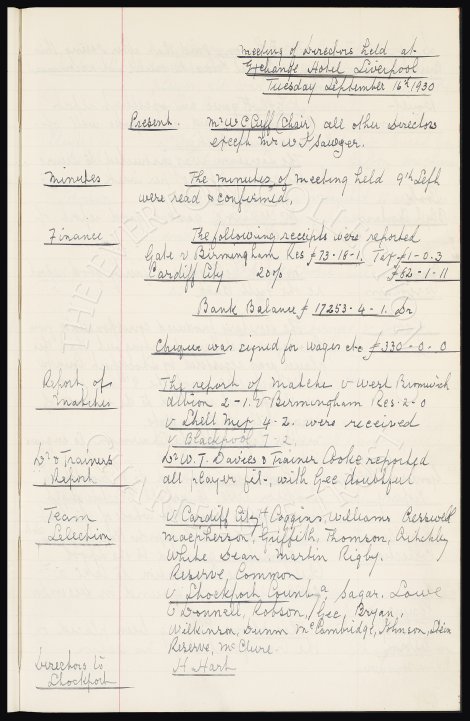 Meeting of Directors held at
Exchange Hotel Liverpool
Tuesday September 16th 1930
Present. Mr W C Cuff (Chair) all other Directors
except Mr W F Sawyer.
Minutes The minutes of meeting held 9th Sept
were read & confirmed.
Finance The following receipts were reported
Gate v Birmingham Res £73-18-1. Tax £1-0.3
Cardiff City 20% £62-1-11
Bank Balance £17253-4-1. Dr
Cheque was signed for wages etc £330-0-0
Report of The report of matches v West Bromwich
Matches Albion 2-1. v Birmingham Res. 2-0
v Shell Mex 4-2. were received
v Blackpool 7-2.
Dr & Trainers Dr W.T. Davies & Trainer Cooke reported
Report all player fit, with Gee doubtful
Team v Cardiff City H Coggins, Williams Cresswell
Selection Macpherson, Griffith, Thomson, Critchley
White Dean, Martin Rigby.
Reserve, Common
v Stockport County a Sagar. Lowe
O'Donnell, Robson, Gee, Bryan,
Wilkinson, Dunn McCambridge, Johnson, Stein
Reserve, McClure.
Directors to H Hart
Stockport
THE EVERTON COLLECTION
CHARITABLE TRUST